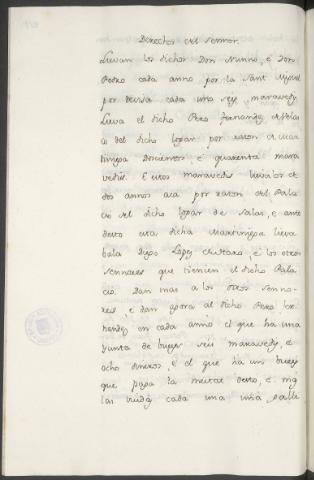 Directos del sennor.
Lievan los dichos Don Nunno, e Don
Pedro cada anno por la Sant Miguel
por devisa cada uno seys maravedis
Lieva el dicho Pero Fernandez el Pala
cio del dicho logar por razon de Mar
tiniega Docientos, e quarenta mara
vedis. E estos maravedis lievalos de
dos annos aca por razon del Pala
cio del dicho logar de Salas, e ante
desto esta dicha Martiniega lieva
bala Diego Lopez de Haro, e los otros
sennores que tienien el dicho Pala
cio. Dan mas a los otros senno-
res e dan agora al dicho Pero Fer
nandez en cada anno el que ha una
yunta de bueys seis maravedis, e
ocho dineros, e el que ha un buey
que paga la meitat desto, e
las viudas cada una una